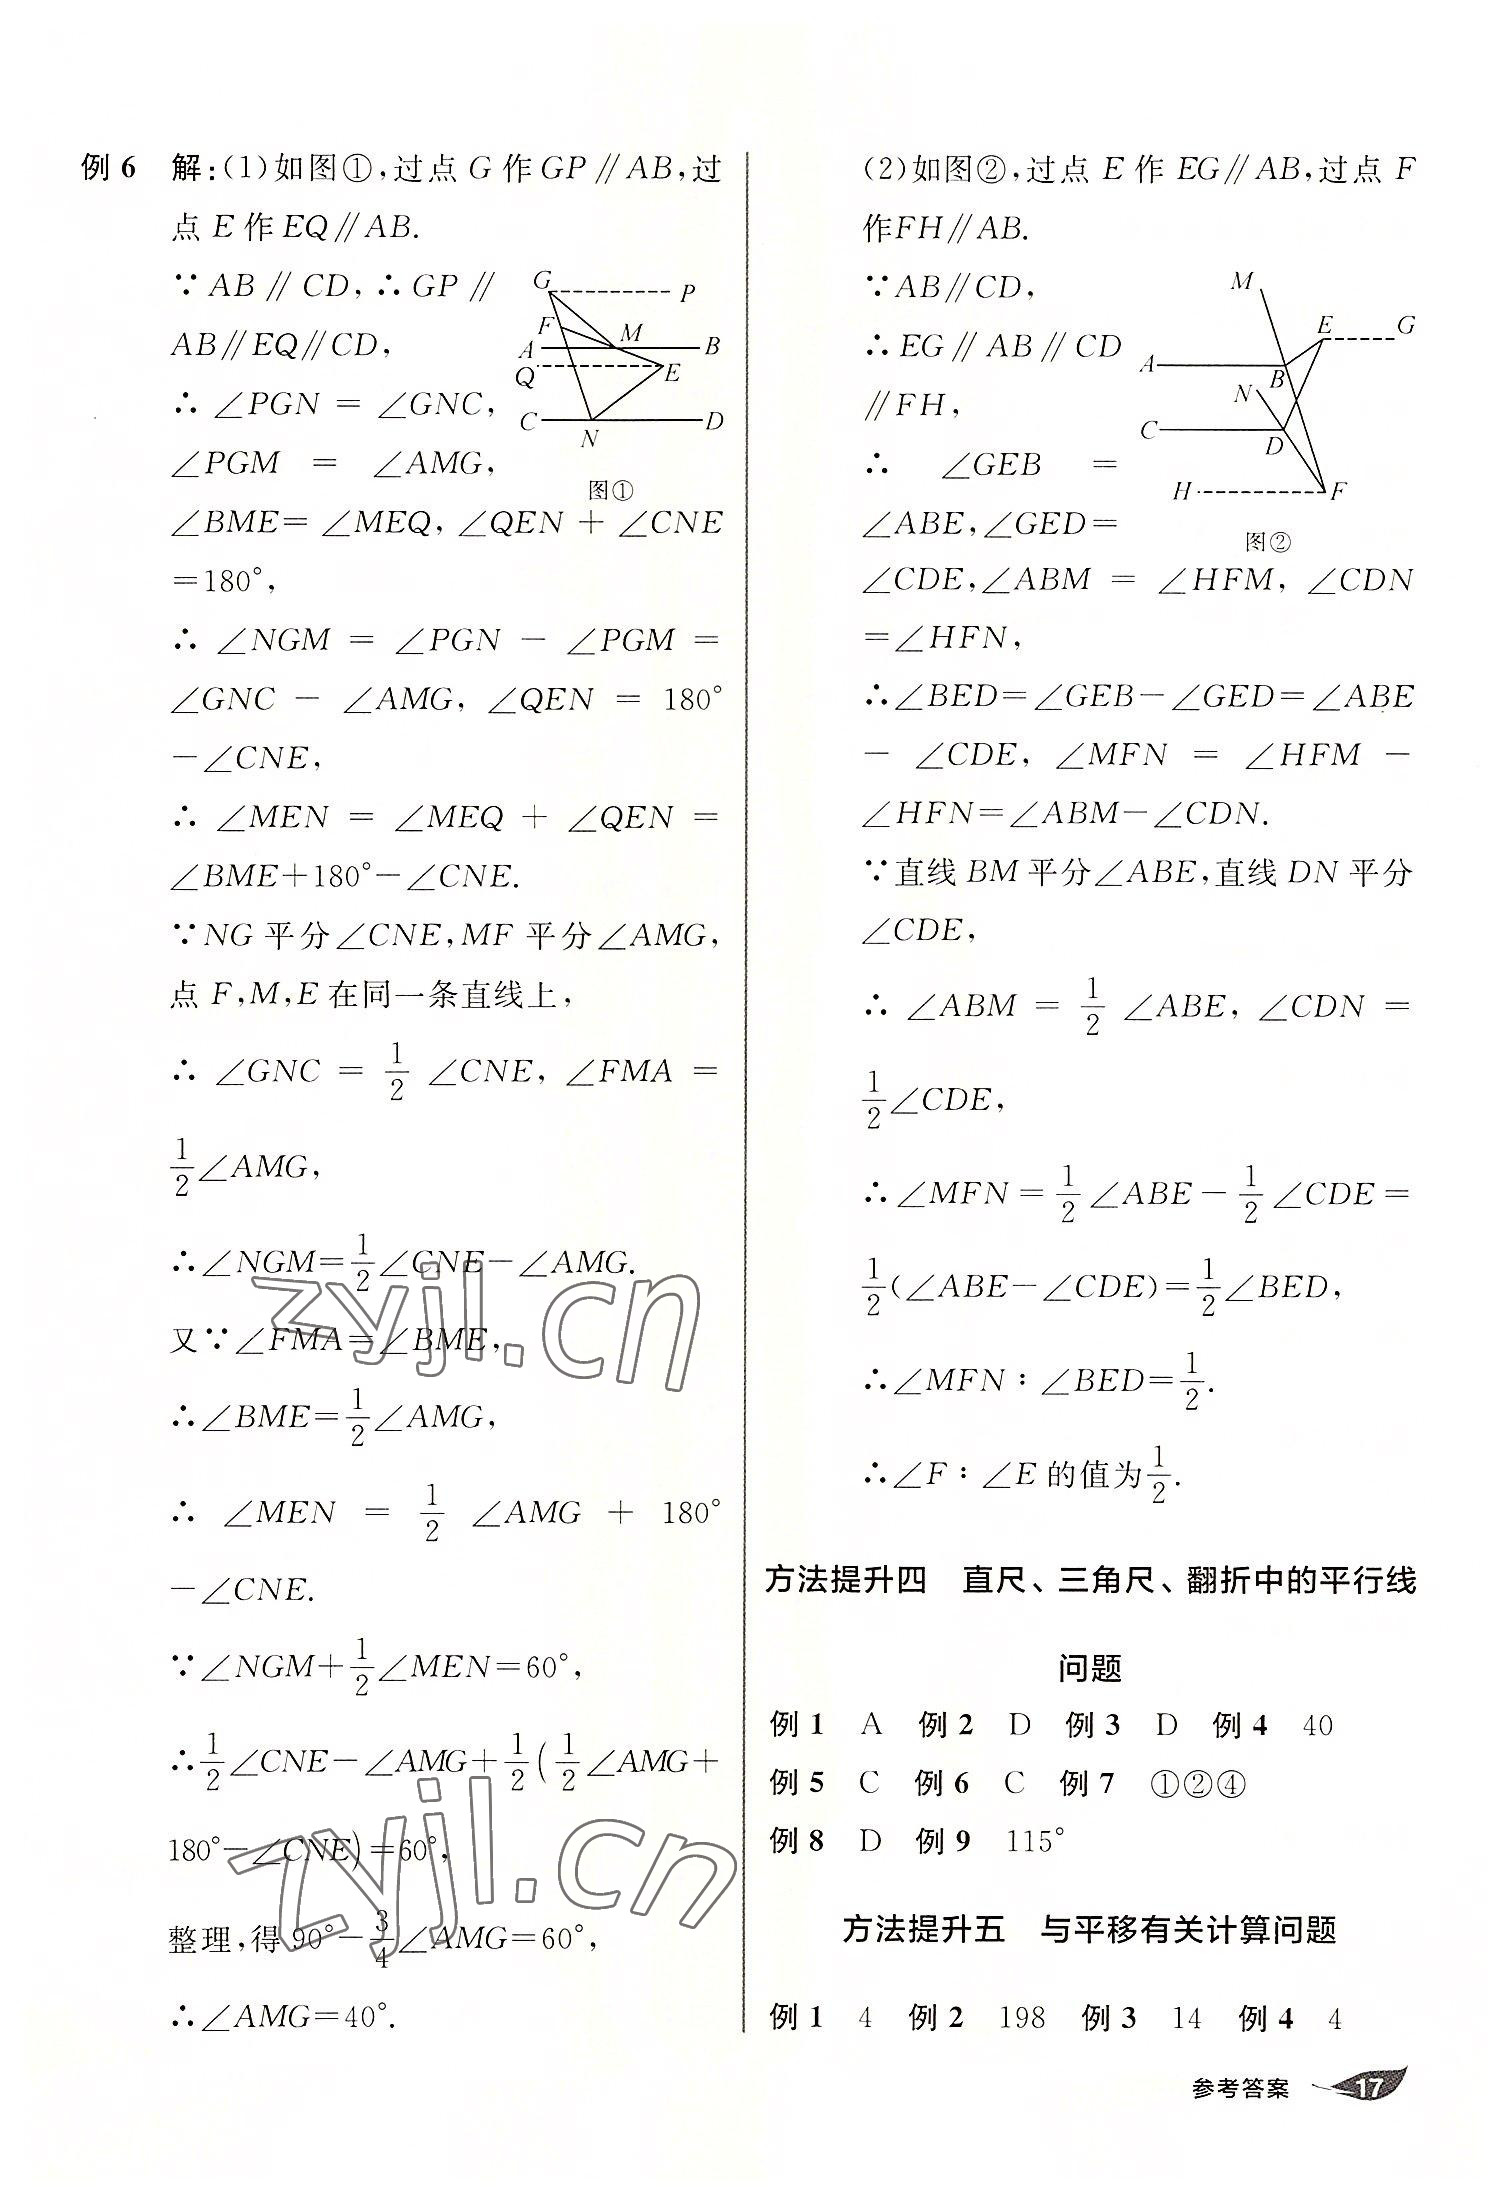 例6 解:(1)如图①,过点G作GP∥AB,过
点E作EQ∥AB.
∵AB∥CD,∴GP∥
AB∥EQ∥CD,
∴∠PGN=∠GNC,
∠PGM=∠AMG,
G
P
F
M
A
B
Q
E
C
D
N
图①
∠BME=∠MEQ,∠QEN+∠CNE
=180°,
∴∠NGM=∠PGN-∠PGM=
∠GNC-∠AMG,∠QEN=180°
-∠CNE,
∴∠MEN=∠MEQ+∠QEN=
∠BME+180°-∠CNE.
∵NG平分∠CNE,MF平分∠AMG,
点F,M,E在同一条直线上,
∴∠GNC=1/2∠CNE,∠FMA=
1/2∠AMG,
∴∠NGM=1/2∠CNE-∠AMG.
又∵∠FMA=∠BME,
∴∠BME=1/2∠AMG,
∴∠MEN=1/2∠AMG+180°
-∠CNE.
∵∠NGM+1/2∠MEN=60°,
∴1/2∠CNE-∠AMG+1/2(1/2∠AMG+
180°-∠CNE)=60°,
整理,得90°-3/4∠AMG=60°,
∴∠AMG=40°.
(2)如图②,过点E作EG∥AB,过点F
作FH∥AB.
∵AB∥CD,
∴EG∥AB∥CD
∥FH,
∴∠GEB=
∠ABE,∠GED=
M
E
G
A
B
N
C
D
H
F
图②
∠CDE,∠ABM=∠HFM,∠CDN
=∠HFN,
∴∠BED=∠GEB-∠GED=∠ABE
-∠CDE,∠MFN=∠HFM-
∠HFN=∠ABM-∠CDN.
∵直线BM平分∠ABE,直线DN平分
∠CDE,
∴∠ABM=1/2∠ABE,∠CDN=
1/2∠CDE,
∴∠MFN=1/2∠ABE-1/2∠CDE=
1/2(∠ABE-∠CDE)=1/2∠BED,
∴∠MFN∶∠BED=1/2.
∴∠F∶∠E的值为1/2.
方法提升四 直尺、三角尺、翻折中的平行线
问题
例1 A 例2 D 例3 D 例4 40
例5 C 例6 C 例7 ①②④
例8 D 例9 115°
方法提升五 与平移有关计算问题
例1 4 例2 198 例3 14 例4 4
参考答案 17
zyjl.cn
zyjl.cn